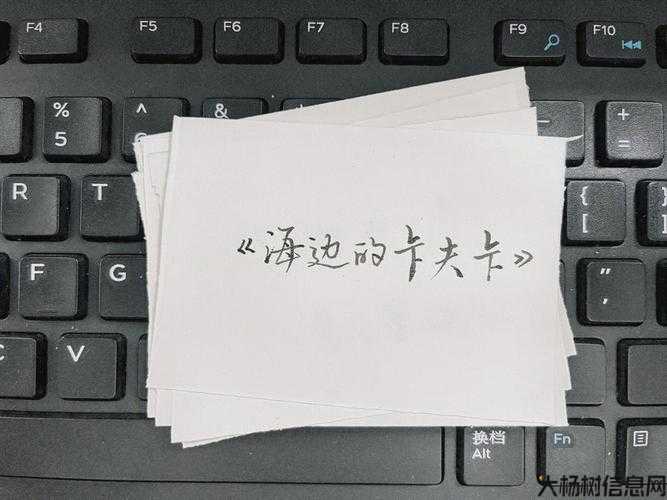 F4
F5
F6
F7
F8
F9
F10
%
5
^
&
+
=
R
T
{
[
F
G
"
,
C
V
《海边的卡夫卡》
换档
Alt
Fn
大杨树信息网